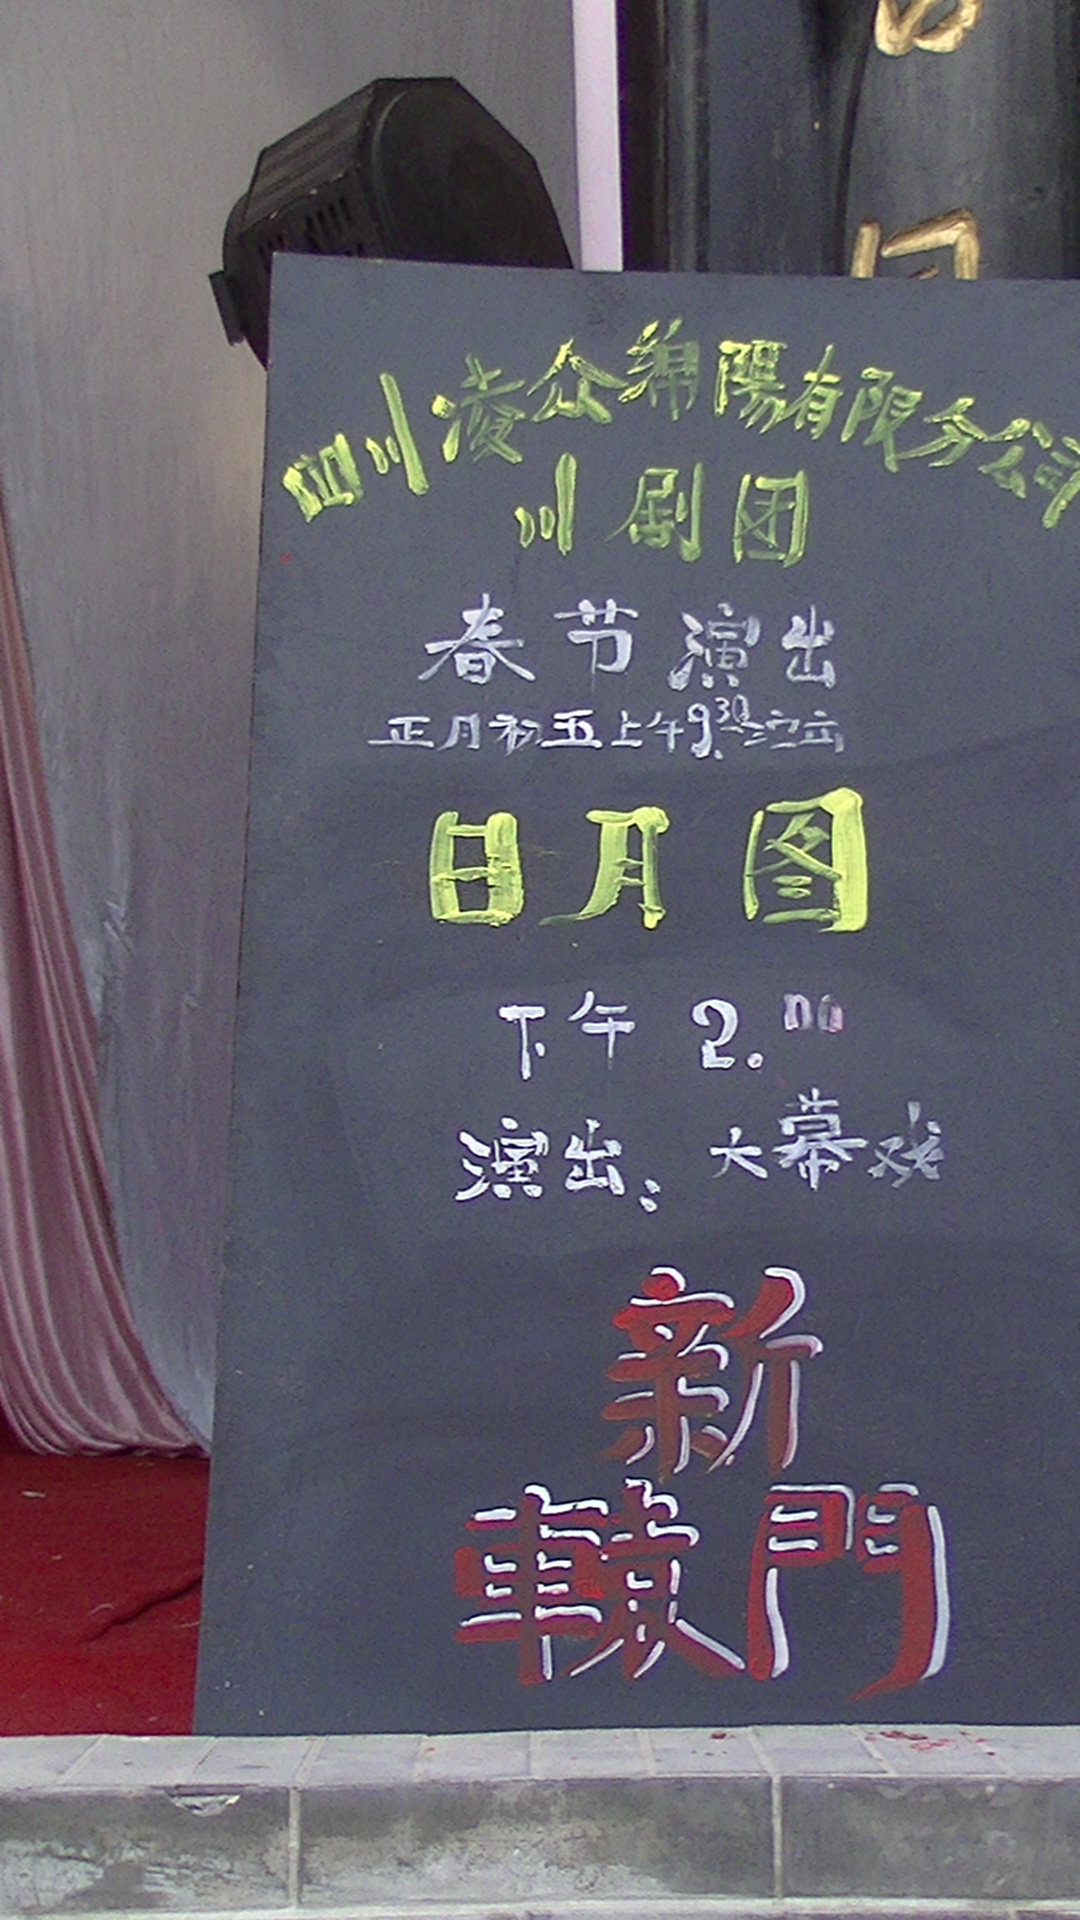 四川凌众绵陽有限分公司
川剧团
春节演出
正月初五上午9.30演出
日月图
下午 2.00
演出: 大幕戏
新
轅門